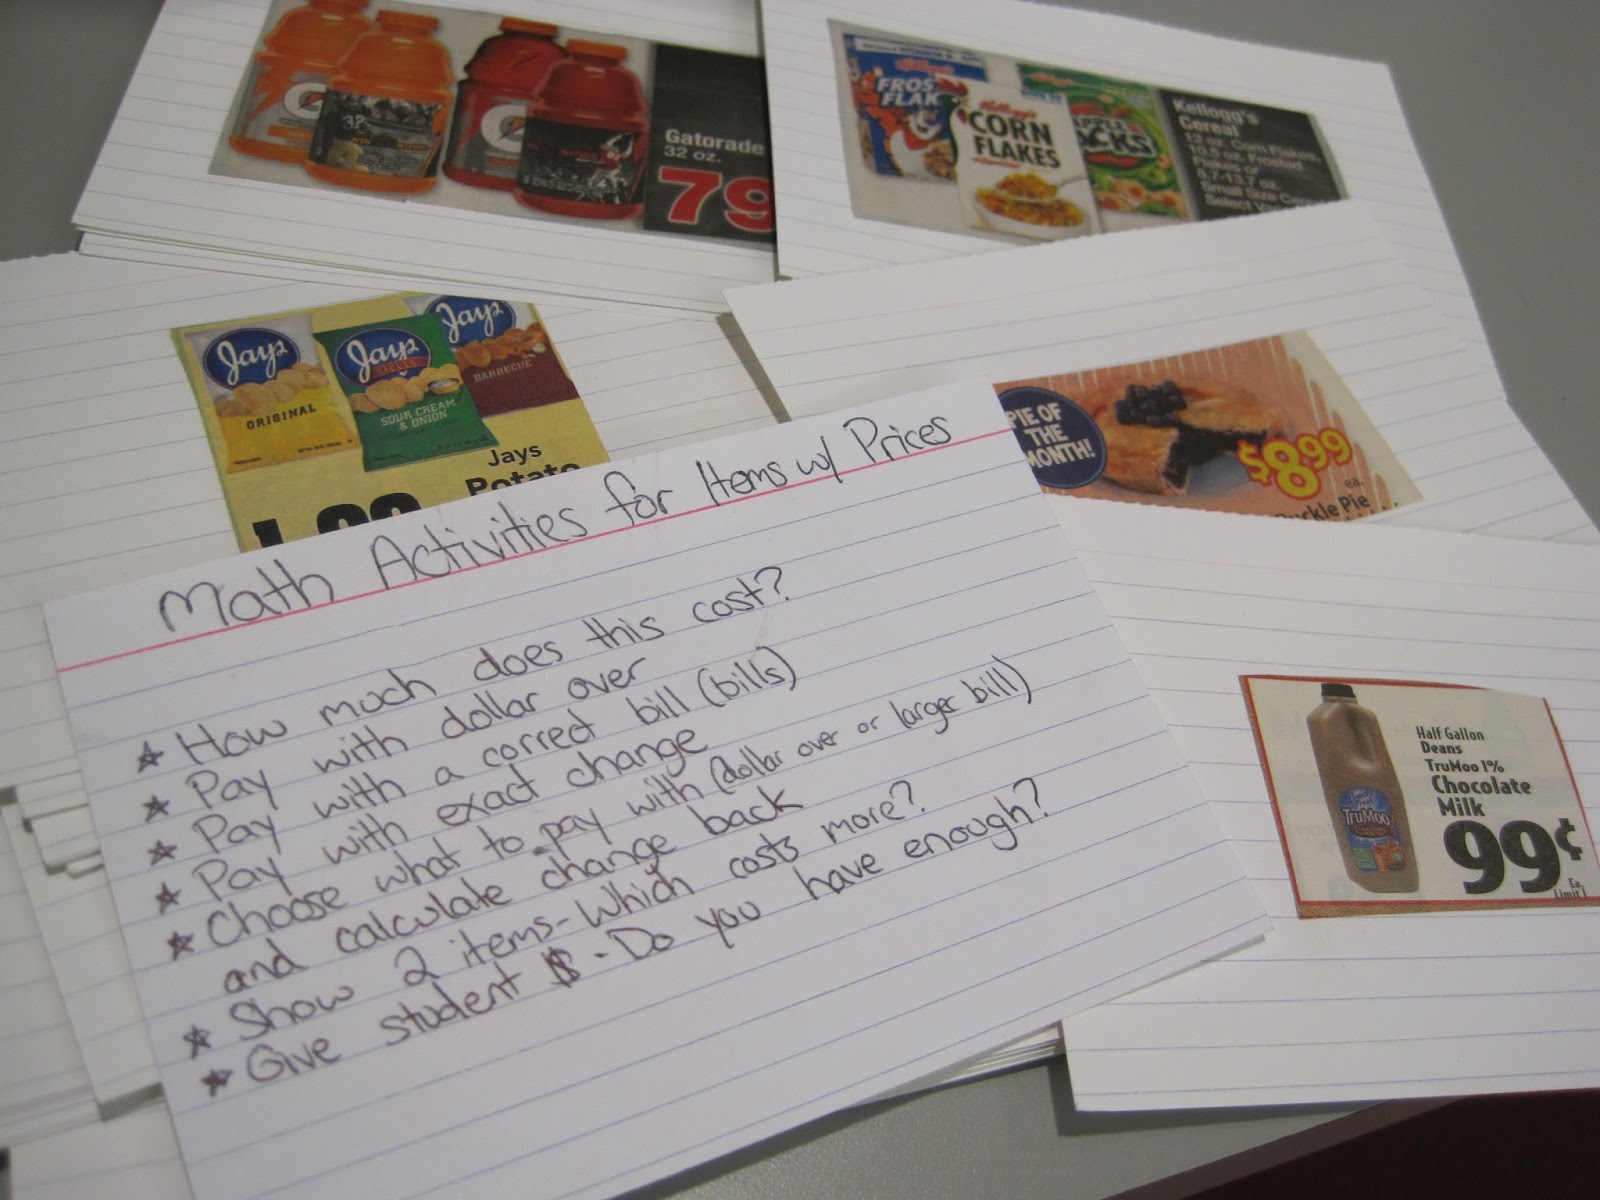 Gatorade
32 oz.
79
Kellogg's
FROS
FLAK
Kellogg's
CORN
FLAKES
Kellogg's
Cereal
Corn Flakes,
10.5 oz. Frosted
Flakes or
8.7-13.7 oz.
Small Size
Select
Jays
ORIGINAL
Jays
SOUR CREAM
& ONION
Jays
BARBECUE
Jays
PIE OF
THE
MONTH!
$8.99
ea.
Pie
Math Activities for Items w/ Prices
★ How much does this cost?
★ Pay with dollar over
★ Pay with a correct bill (bills)
★ Pay with exact change
★ Choose what to pay with (dollar over or larger bill)
and calculate change back
★ Show 2 items - Which costs more?
★ Give student $ - Do you have enough?
Half Gallon
Deans
TruMoo 1%
Chocolate
Milk
99¢
Ea.
Limit 1
TruMoo